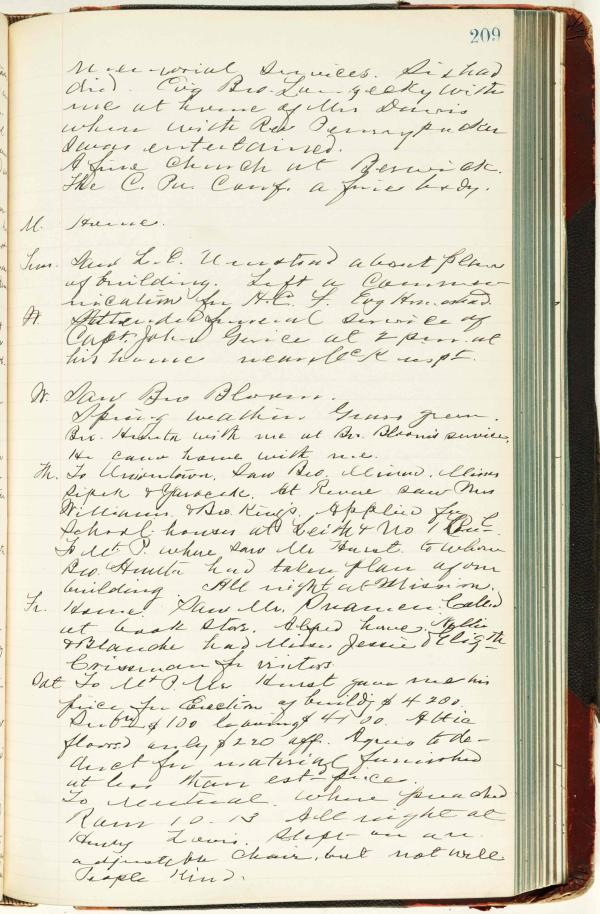 209
Memorial Services. Sis had
died. Evg Bro. with
me at home of Mrs Davis
where with Rev Pennypacker
I was entertained.
A fine Church at Berwick.
The C. Pa. Conf. a fine body.
M. Home.
Tues. And L. C. Umstead about plans
of building. Left a commu-
nication for H.C. F. Evg
W. Attended funeral service of
Capt. John at 2 p.m. at
his home near
W. Saw Bro Bloom.
Spring weather. Grass green.
Bro. with me at Bro. Bloom's service.
He came home with me.
Th. To Uniontown. Saw Bro. Minor. Misses
Sipek & . At Revere saw Mrs
Williams & Bro. King's. Applied for
School houses at Leith & No 1
To Mt P. where saw Mr Hurst to whom
Bro. had taken plan of our
building. All night at Mission.
Fr. Home. Saw Mr. Called
at book store. Abed home. Nellie
& Blanche had Misses Jessie & Elizth
Crissman for visitors
Sat To Mt P. Mr Hurst gave me his
price for Erection of build'g $4200.
$100 leaving $4100. Attic
floored only $220 off. Agrees to de-
duct for material furnished
at less than est- price.
To Mutual. where preached
Rom 10-13 All night at
Henry Lowis. Slept on an
adjustable chair, but not well
People Kind.